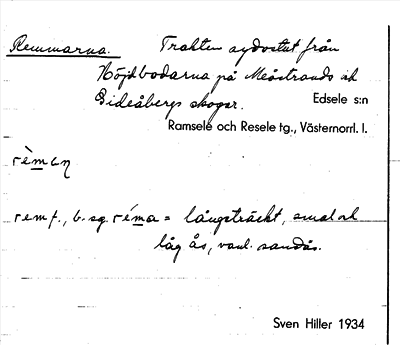 Remmarna. Trakten sydostut från
Höjdbodarna på Meåstrands och
Gideåbergs skogar. Edsele s:n
Ramsele och Resele tg., Västernorrl. l.
rèmaɳ
rem f., b. sg. réma = långsträckt, smal och
låg ås, vanl. sandås.
Sven Hiller 1934